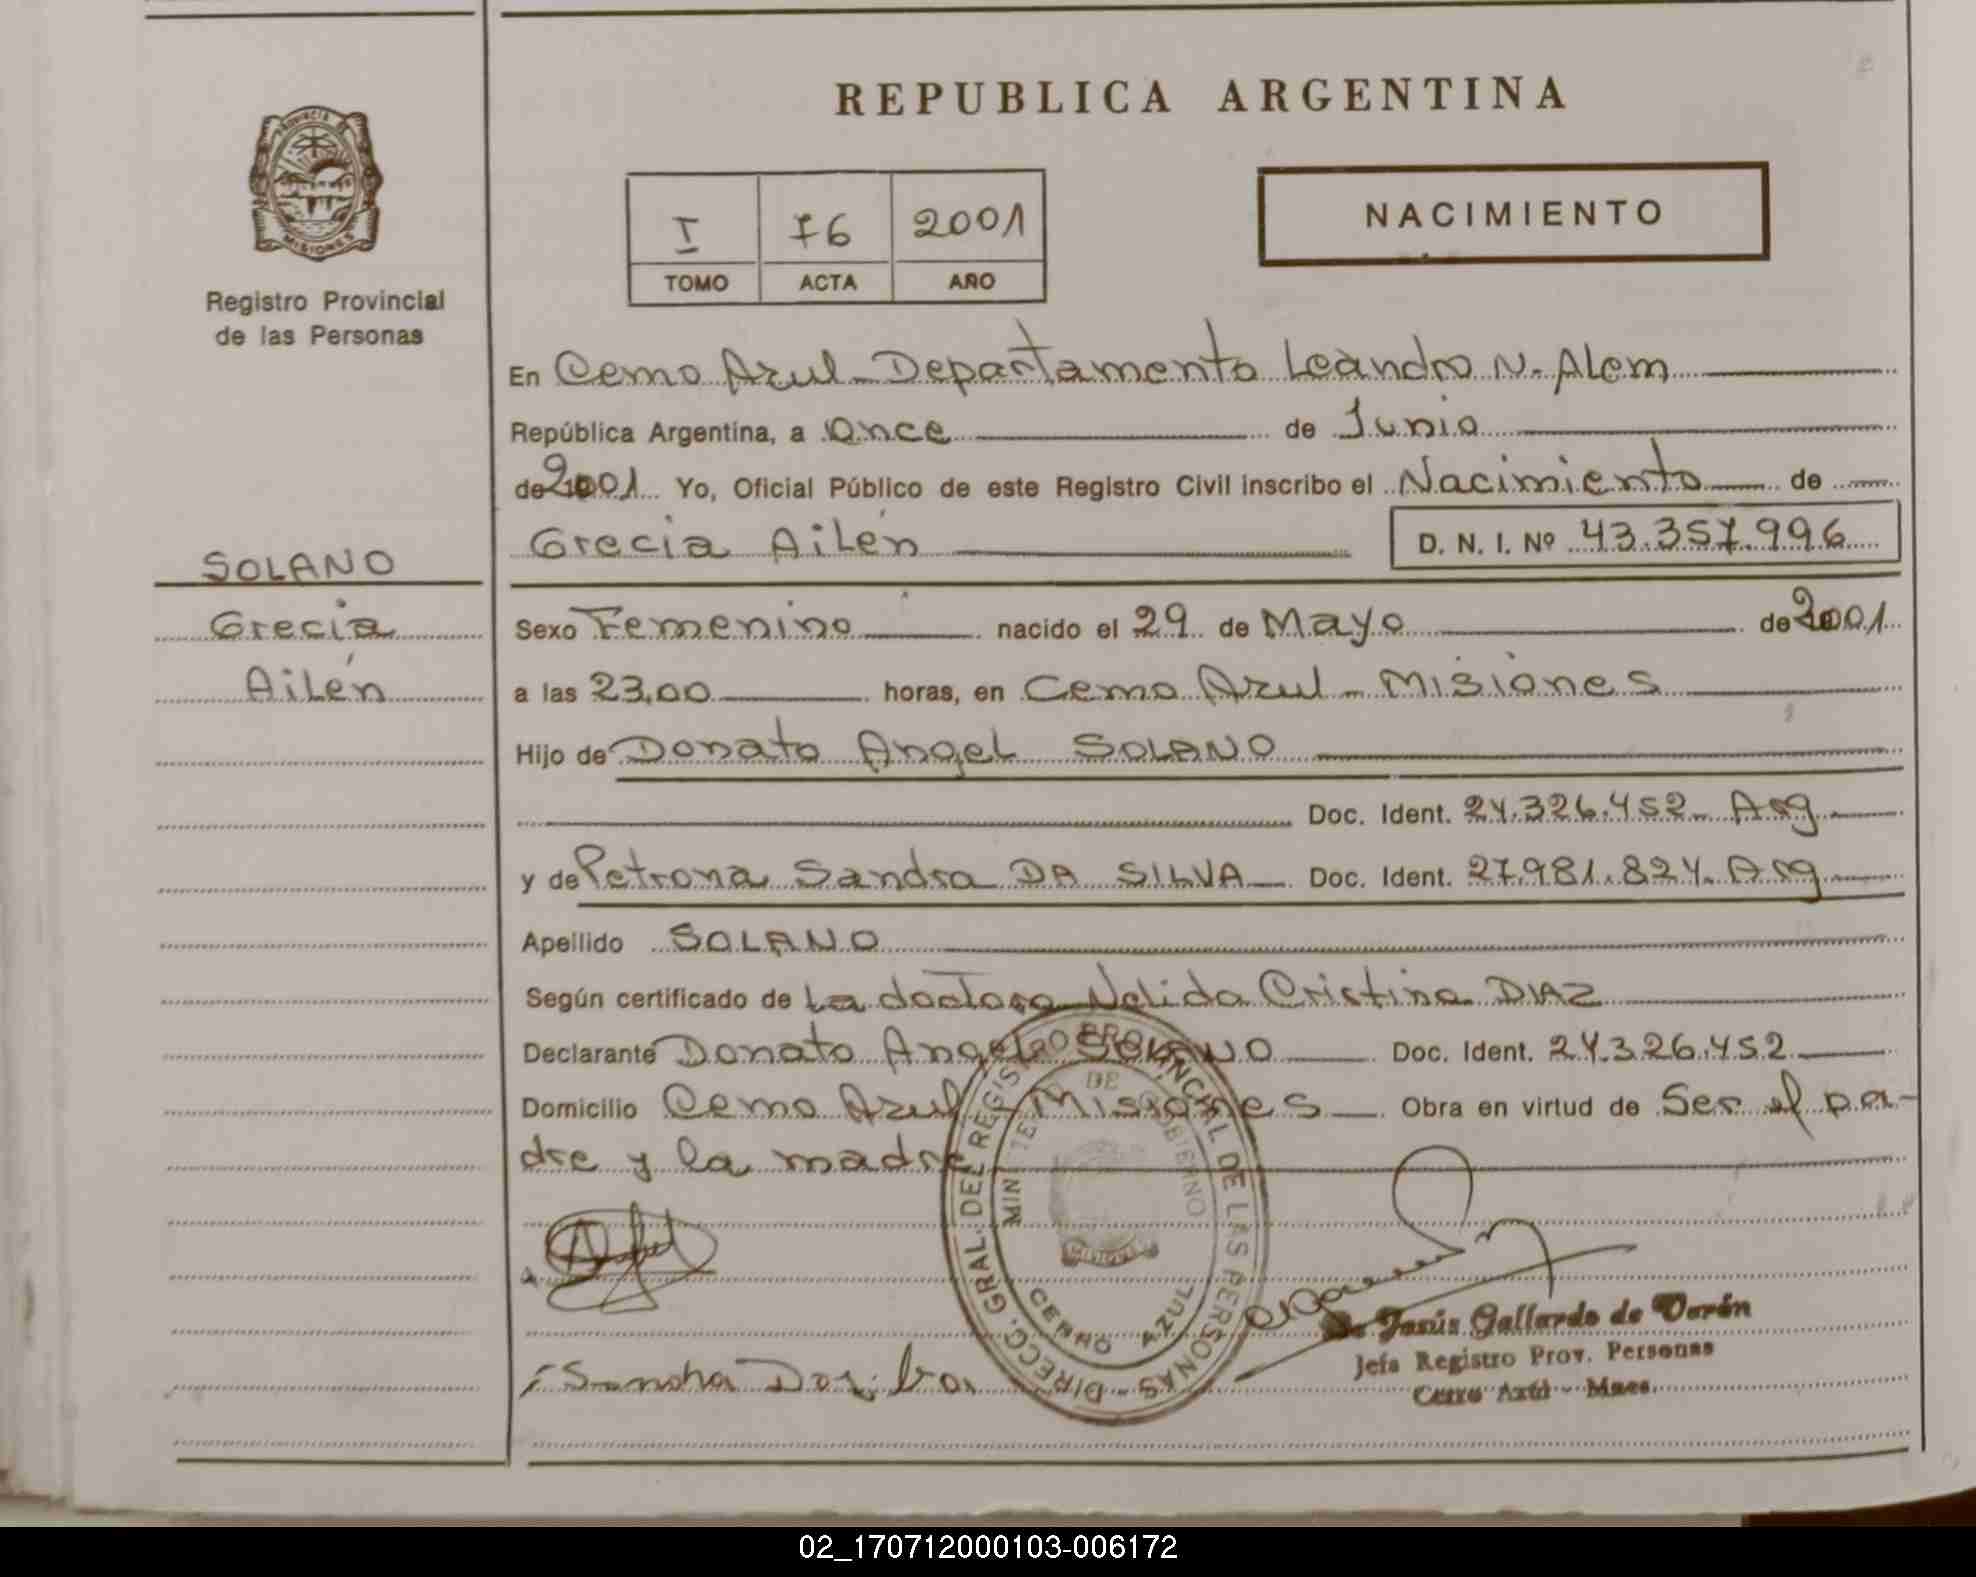 REPUBLICA ARGENTINA
PROVINCIA DE
MISIONES
Registro Provincial
de las Personas
I 76 2001
TOMO ACTA AÑO
NACIMIENTO
En Cerro Azul - Departamento Leandro N. Alem
República Argentina, a once de Junio
de 2001 Yo, Oficial Público de este Registro Civil inscribo el Nacimiento de
Grecia Ailén D. N. I. Nº 43.357.996
SOLANO
Grecia
Ailén
Sexo Femenino nacido el 29 de Mayo de 2001
a las 23,00 horas, en Cerro Azul - Misiones
Hijo de Donato Angel SOLANO
Doc. Ident. 24.326.452 Arg
y de Petrona Sandra DA SILVA Doc. Ident. 27.981.824. Arg
Apellido SOLANO
Según certificado de La doctora Nelida Cristina DIAZ
Declarante Donato Angel SOLANO Doc. Ident. 24.326.452
Domicilio Cerro Azul - Misiones Obra en virtud de Ser el pa-
dre y la madre
DIRECC. GRAL. DEL REGISTRO PROVINCIAL DE LAS PERSONAS
DE GOBIERNO
MISIONES
CERRO AZUL
Jesús Gallardo de Verón
Jefa Registro Prov. Personas
Cerro Azul - Mnes.
02_170712000103-006172